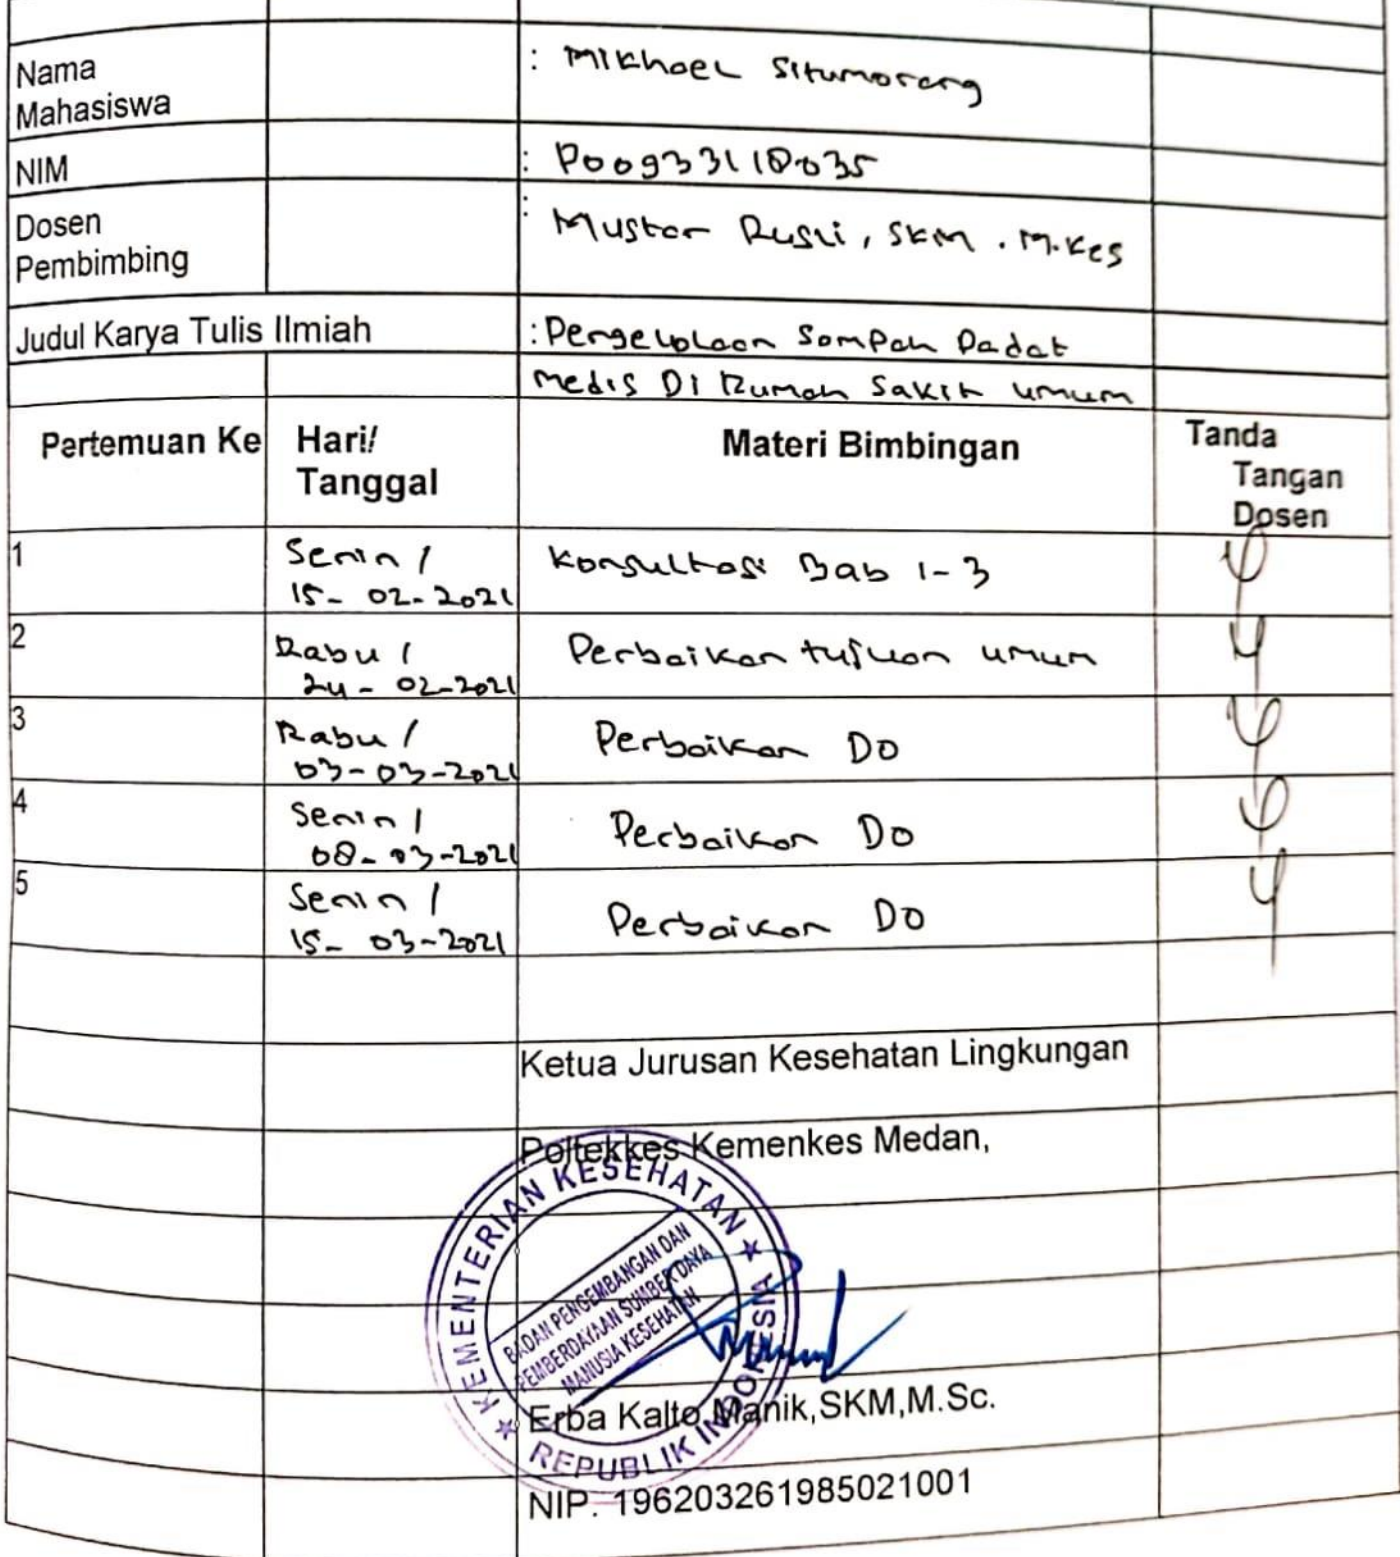 Nama
Mahasiswa
: Mikhael Situmorang
NIM
: P00933118035
Dosen
Pembimbing
: Mustar Rusli, SKM. M.Kes
Judul Karya Tulis Ilmiah
: Pengelolaan Sampah Padat
Medis Di Rumah Sakit Umum
Pertemuan Ke
Hari/
Tanggal
Materi Bimbingan
Tanda
Tangan
Dosen
1
Senin /
15-02-2021
Konsultasi Bab 1-3
2
Rabu /
24-02-2021
Perbaikan tujuan umum
3
Rabu /
03-03-2021
Perbaikan DO
4
Senin /
08-03-2021
Perbaikan DO
5
Senin /
15-03-2021
Perbaikan DO
Ketua Jurusan Kesehatan Lingkungan
Poltekkes Kemenkes Medan,
KEMENTERIAN KESEHATAN
BADAN PENGEMBANGAN DAN
PEMBERDAYAAN SUMBER DAYA
MANUSIA KESEHATAN
REPUBLIK INDONESIA
Erba Kalto Manik,SKM,M.Sc.
NIP. 196203261985021001